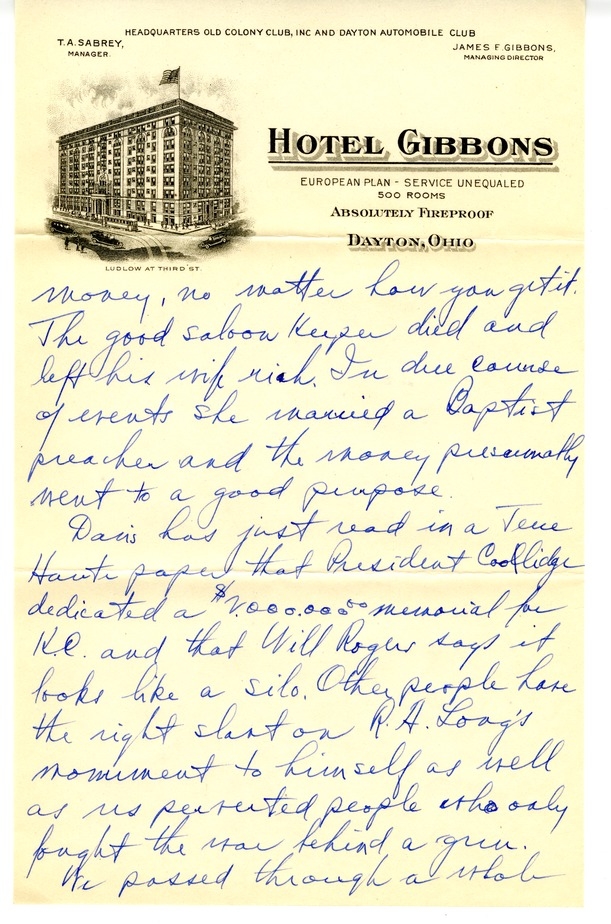 HEADQUARTERS OLD COLONY CLUB, INC AND DAYTON AUTOMOBILE CLUB
T.A. SABREY,
MANAGER.
JAMES F. GIBBONS,
MANAGING DIRECTOR
HOTEL GIBBONS
EUROPEAN PLAN - SERVICE UNEQUALED
500 ROOMS
ABSOLUTELY FIREPROOF
DAYTON, OHIO
LUDLOW AT THIRD ST.
money, no matter how you get it.
The good saloon keeper died and
left his wife rich. In due course
of events she married a Baptist
preacher and the money presumably
went to a good purpose.
Davis has just read in a Terre
Haute paper that President Coollidge
dedicated a memorial for
K.C. and that Will Rogers says it
looks like a silo. Other people have
the right slant on R.A. Long's
monument to himself as well
as us perverted people who only
fought the war behind a gun.
We passed through a whole